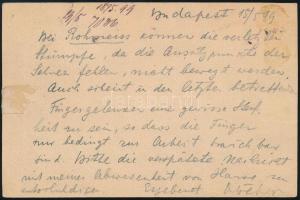 18/5 99
19/5 7046
Budapest 15/5 99
Bei Rohreneis können die verletzten
Stümpfe, da die Ansatzpunkte der
Sehnen fehlen, nicht bewegt werden.
Auch scheint in der letzten betreffenden
Fingergelenken eine gewisse Steif
heit zu sein, so dass die Finger
nur bedingt zur Arbeit brauchbar
sind. Bitte die verspätete Nachricht
mit meiner Abwesenheit von Hause zu
entschuldigen Ergebenst